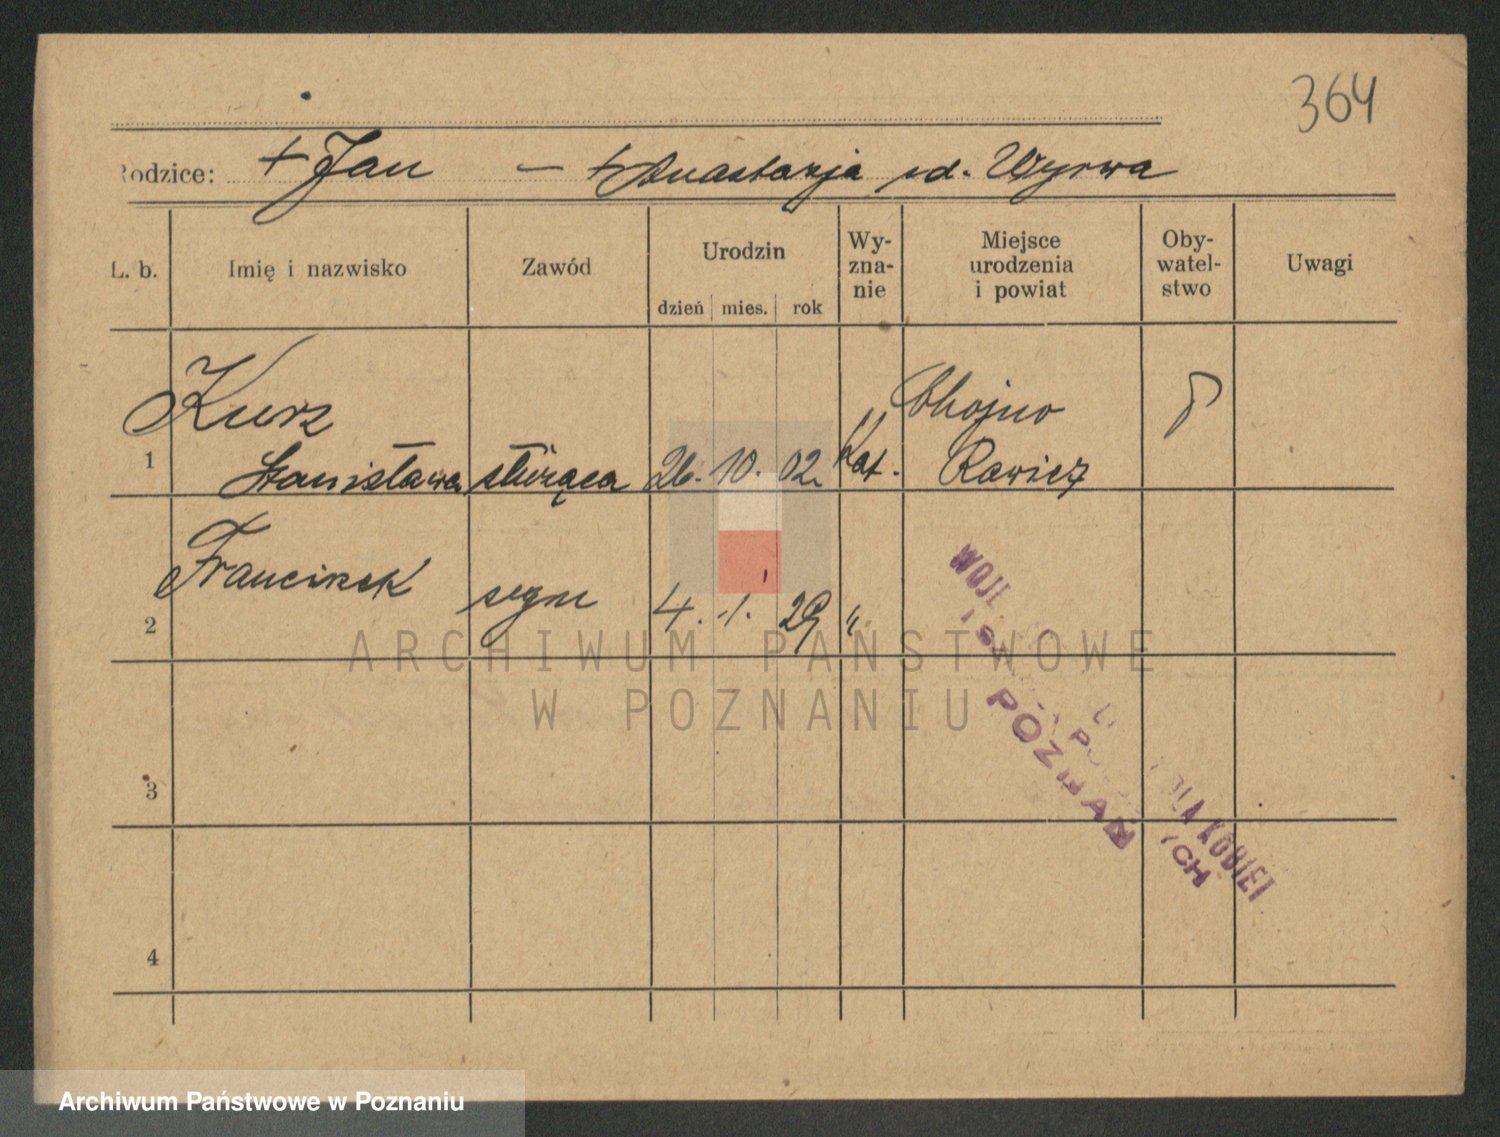 364
Rodzice: + Jan — + Anastazja zd. Wyrwa
L. b. Imię i nazwisko Zawód Urodzin dzień mies. rok Wy-zna-nie Miejsce urodzenia i powiat Oby-watel-stwo Uwagi
Kurz Chojno P
1 Stanisława służąca 26. 10. 02. Kat. Rawicz
2 Franciszek 4. 1. 29 "
3
4
WOJE DLA KOBIET
YCH
POZNAŃ
ARCHIWUM PAŃSTWOWE
W POZNANIU
Archiwum Państwowe w Poznaniu